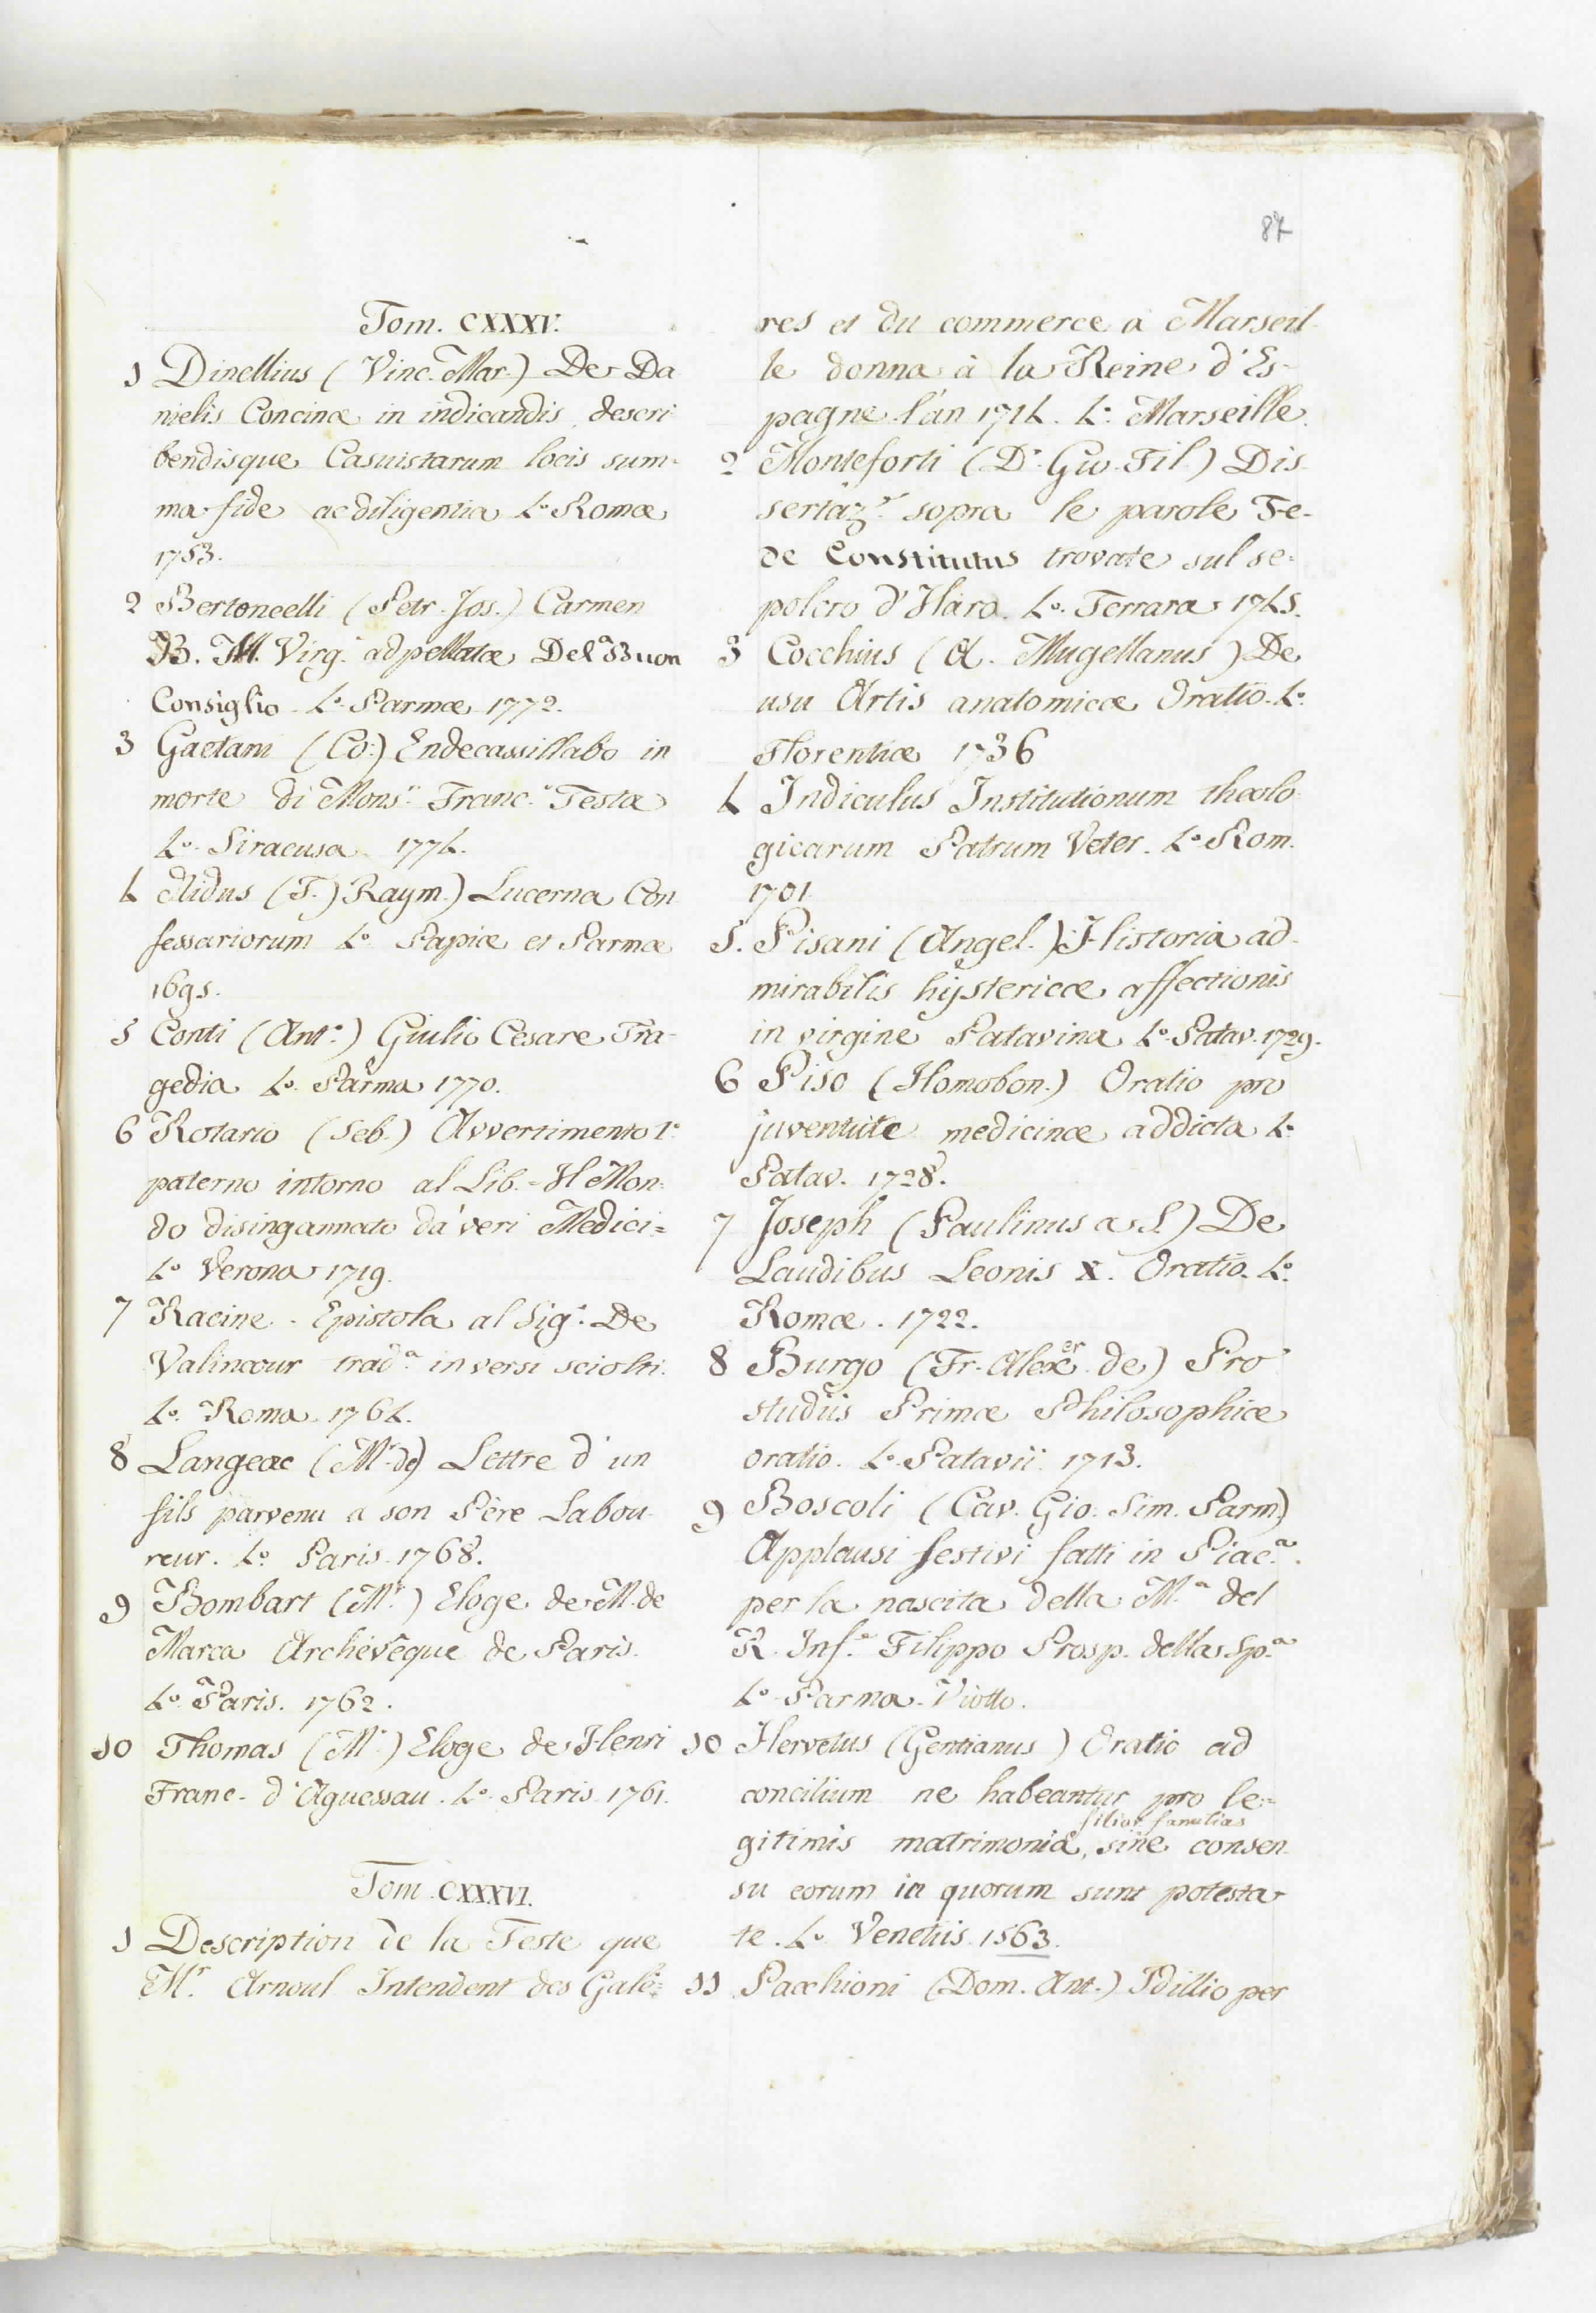 87
Tom. CXXXV.
1 Dinellius (Vinc. Mar.) De Da
nielis Concinæ in indicandis, descri
bendisque Casuistarum locis sum-
ma fide ac diligentia 4.º Romæ
1753.
2 Bertoncelli (Petr. Jos.) Carmen
B. M. Virg. adpellatæ Del Buon
Consiglio 4.º Parmæ 1772.
3 Gaetani (Co:) Endecassillabo in
morte di Mons.r Franc.º Testa
4.º Siracusa 1774.
4 Alidus (F.) Raym.) Lucerna Con
fessariorum 4.º Papiæ et Parmæ
1695.
5 Conti (Ant.º) Giulio Cesare Tra-
gedia 4.º Parma 1770.
6 Rotario (Seb.) Avvertimento 1.º
paterno intorno al Lib. = Il Mon-
do disingannato da' veri Medici =
4.º Verona 1719.
7 Racine. Epistola al Sig.r De
Valincour trad.a in versi sciolti.
4.º Roma 1764.
8 Langeac (M.r de) Lettre d'un
fils parvenu a son Père Labou-
reur. 4.º Paris 1768.
9 Bombart (M.r) Eloge de M. de
Marca Archevêque de Paris.
4.º Paris. 1762.
10 Thomas (M.r) Eloge de Henri
Franc. d'Aguessau. 4.º Paris 1761.
Tom. CXXXVI.
1 Description de la Feste que
M.r Arnoul Intendent des Galè=
res et du commerce a Marseil-
le donna à la Reine d'Es-
pagne l'an 1714. 4.º Marseille.
2 Monteforti (D.r Giu. Fil.) Dis
sertaz.e sopra le parole Fe-
de Constitutus trovate sul se-
polcro d'Ilaro. 4.º Ferrara 1745.
3 Cocchius (A. Mugellanus) De
usu Artis anatomicæ Oratio. 4.º
Florentiæ 1736
4 Indiculus Institutionum theolo-
gicarum Patrum Veter. 4.º Rom.
1701
5. Pisani (Angel.) Historia ad-
mirabilis hystericæ affectionis
in virgine Patavina 4.º Patav. 1729.
6 Piso (Homobon.) Oratio pro
juventute medicinæ addicta 4.º
Patav. 1728.
7 Joseph (Paulinus a S.) De
Laudibus Leonis X. Oratio. 4.º
Romæ. 1722.
8 Burgo (Fr. Alexer de) Pro
studiis Primæ Philosophiæ
oratio. 4.º Patavii 1713.
9 Boscoli (Cav. Gio. Sim. Parm.)
Applausi festivi fatti in Piac.a
per la nascita della M.a del
R. Inf.e Filippo Prosp. della Sp.a
4.º Parma. Viotto.
10 Hervetus (Gentianus) Oratio ad
concilium ne habeantur pro le=
filior familias
gitimis matrimonia, sine consen
su eorum in quorum sunt potesta
te. 4.º Venetiis 1563.
11 Pacchioni (Dom. Ant.) Idillio per